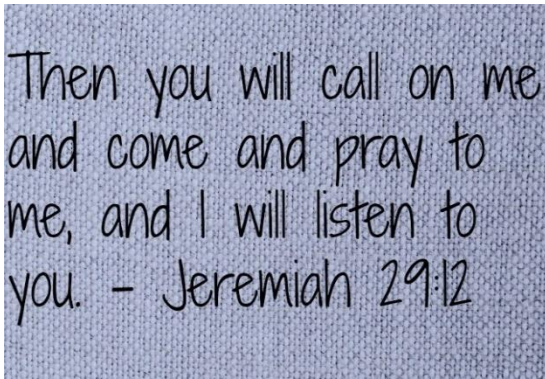 Then you will call on me
and come and pray to
me, and I will listen to
you. - Jeremiah 29:12